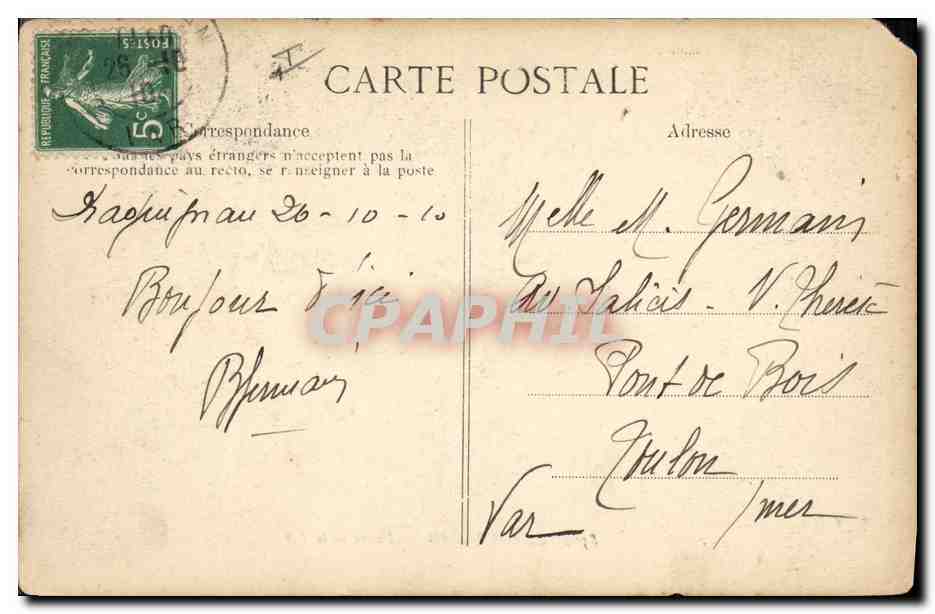 CARTE POSTALE
REPUBLIQUE FRANÇAISE
POSTES
5c
Correspondance
Tous les pays étrangers n'acceptent pas la
correspondance au recto, se renseigner à la poste
26-10-10
Bonjour d'ici
BGermain
Adresse
Melle M. Germain
Av Salicis - V. Therese
Pont de Bois
Toulon
/mer
Var
CPAPHIL